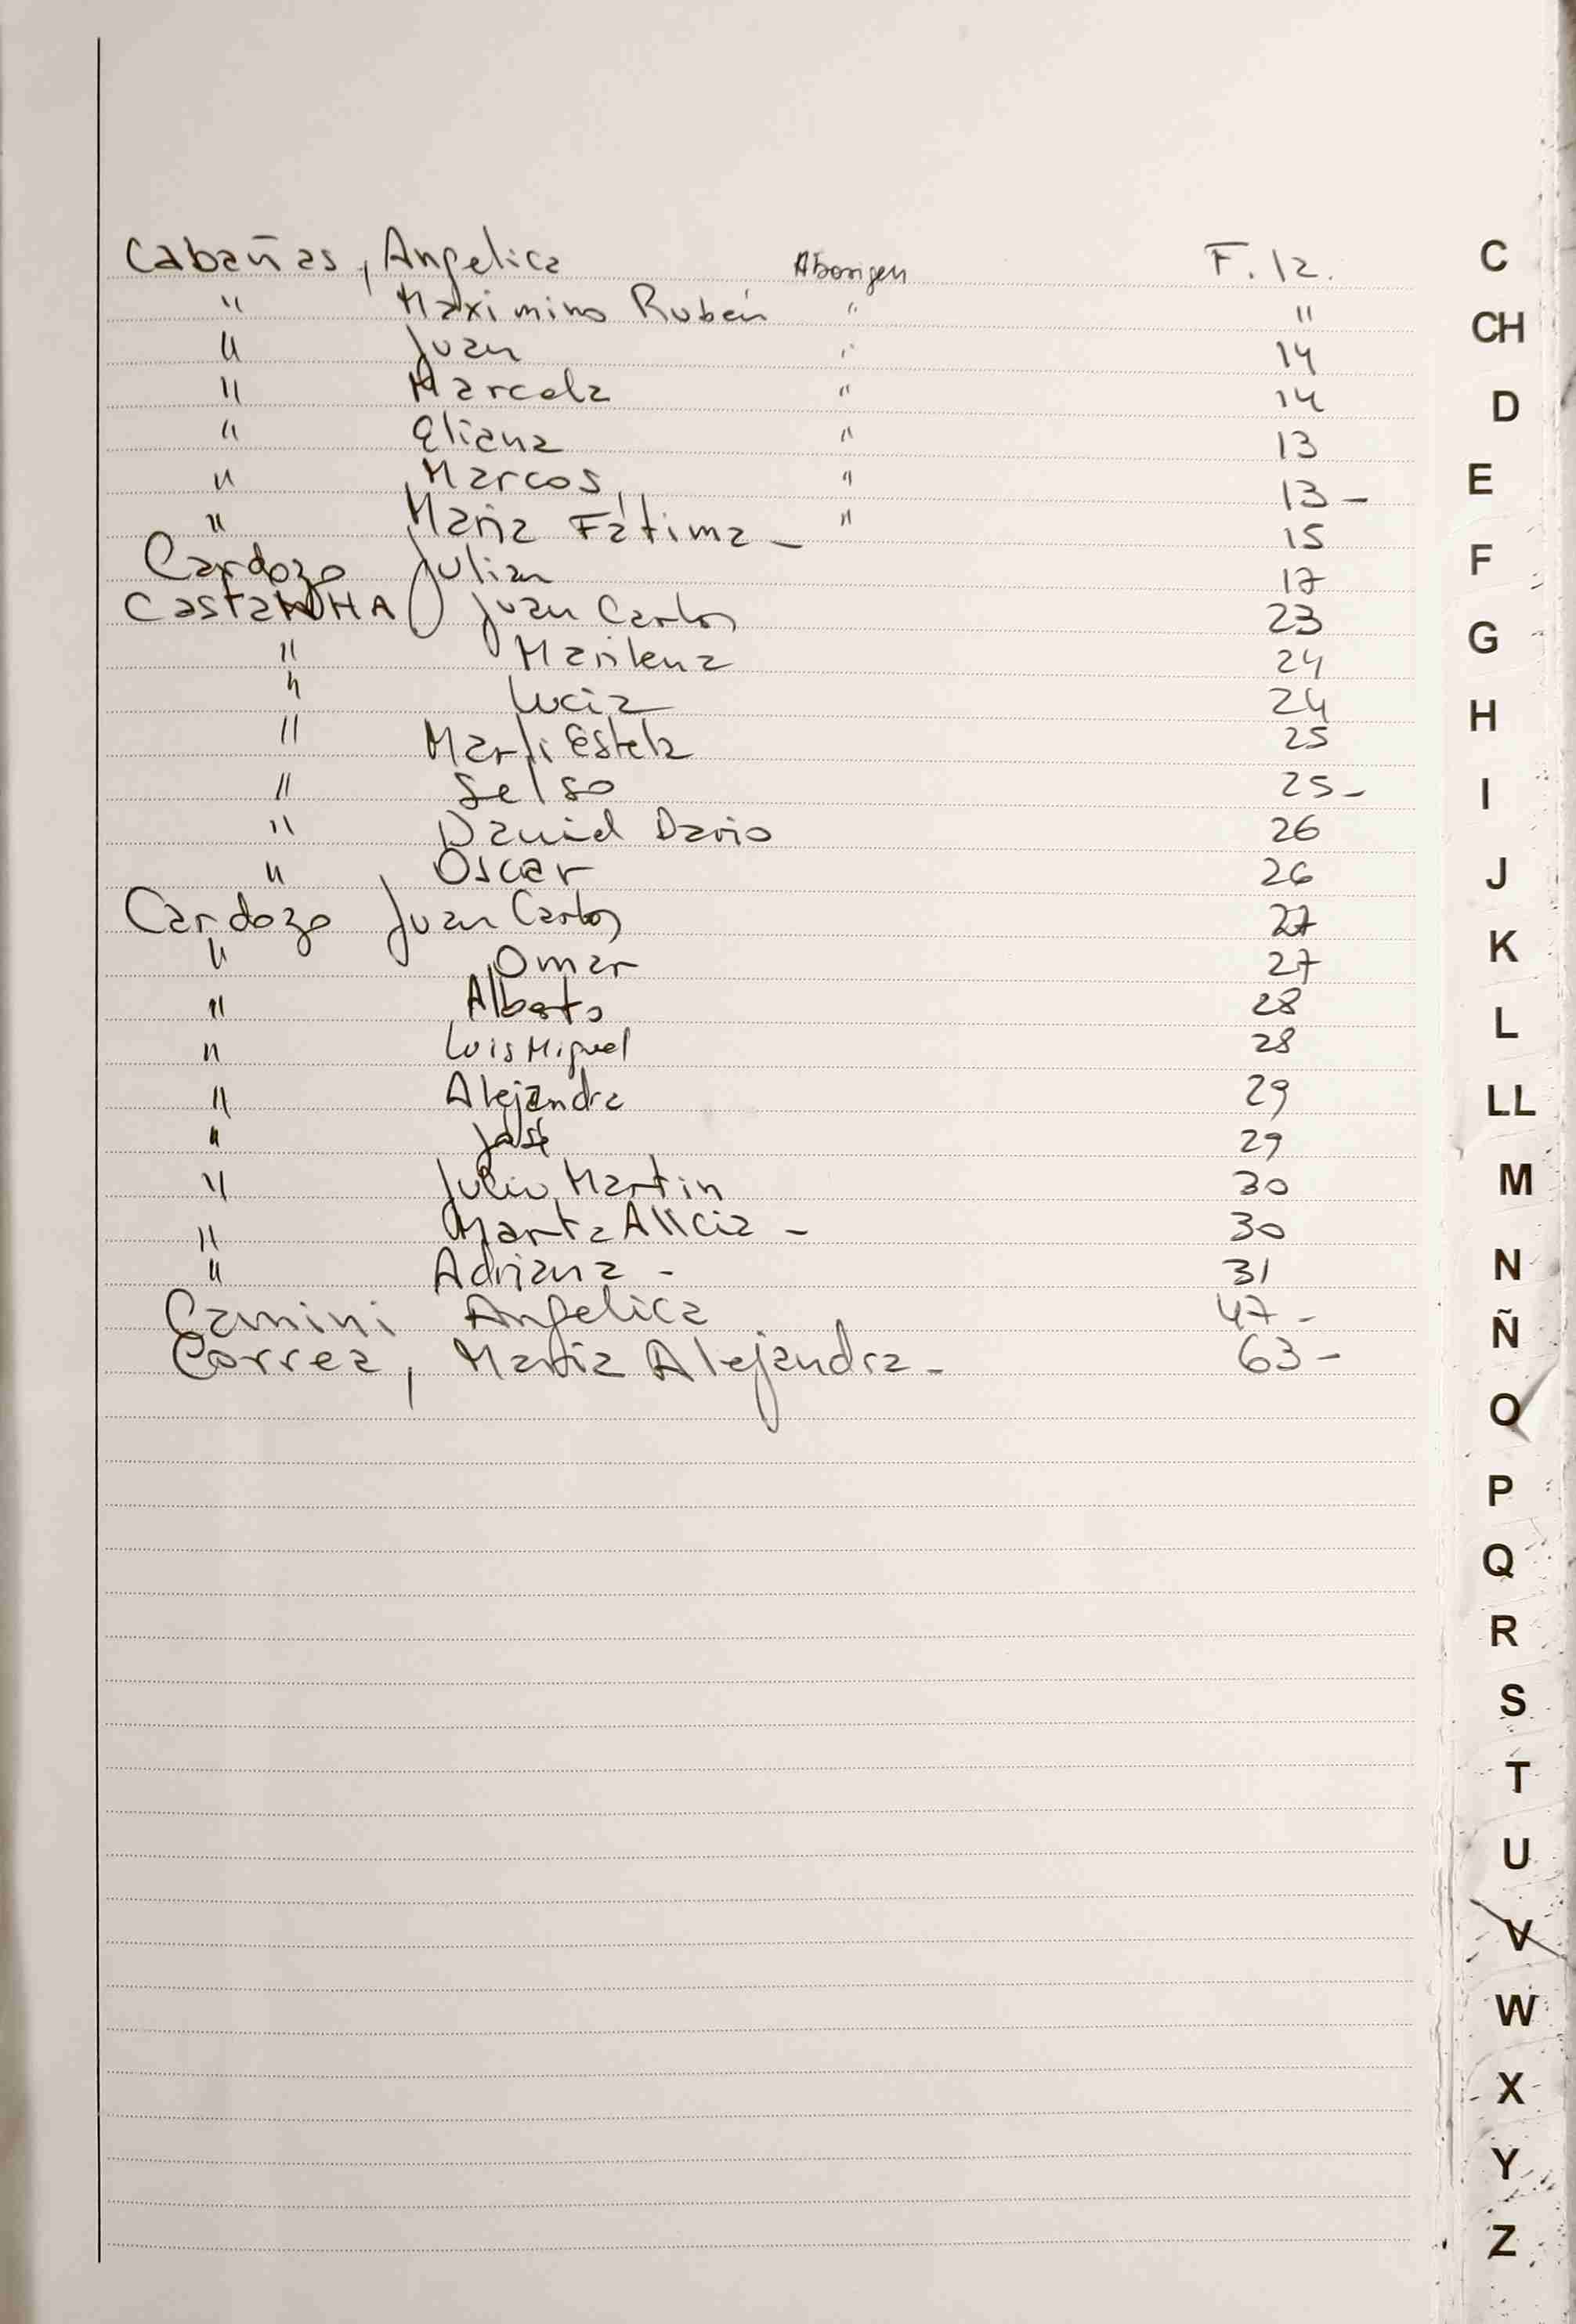 Cabañas, Angelica Aborigen F. 12.
" Maximino Rubén " "
" Juan " 14
" Marcela " 14
" Eliana " 13
" Marcos " 13-
" María Fátima - " 15
Cardozo Julian 17
CastaNHA Juan Carlos 23
" Marilena 24
" Lucia 24
" Marli Estela 25
" Selso 25-
" Daniel Dario 26
" Oscar 26
Cardozo Juan Carlos 27
" Omar 27
" Alberto 28
" Luis Miguel 28
" Alejandra 29
" José 29
" Julio Martin 30
" Marta Alicia - 30
" Adriana - 31
Camini Angelica 47-
Correa, Maria Alejandra- 63-
C
CH
D
E
F
G
H
I
J
K
L
LL
M
N
Ñ
O
P
Q
R
S
T
U
V
W
X
Y
Z